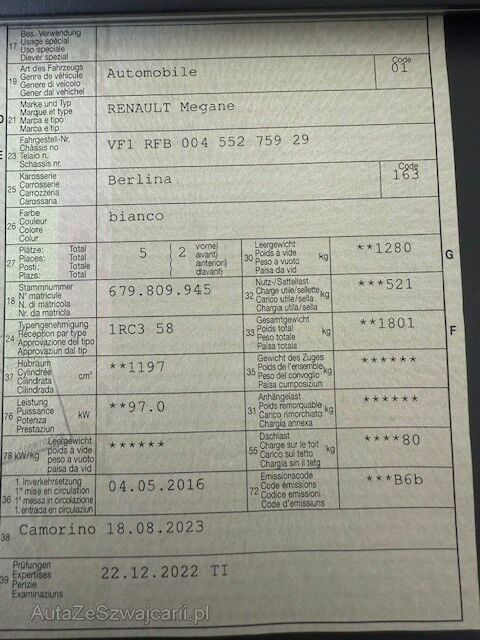 Bes. Verwendung
Usage spécial
Uso speciale
Diever spezial
17
Art des Fahrzeugs
Genre de véhicule
Genere di veicolo
Gener dal vehichel
19
Automobile
Code
01
Marke und Typ
Marque et type
Marca e tipo
Marca e tip
21
RENAULT Megane
Fahrgestell-Nr.
Châssis no
Telaio n.
Schassis nr.
23
VF1 RFB 004 552 759 29
Karosserie
Carrosserie
Carrozzeria
Carossaria
25
Berlina
Code
163
Farbe
Couleur
Colore
Colur
26
bianco
Plätze: Total
Places: Total
Posti: Totale
Plazs: Total
27
5 ( 2 vorne)
avant)
anteriori)
davant)
Leergewicht
Poids à vide
Peso a vuoto
Paisa da vid
30 kg
**1280
G
Stammnummer
N° matricule
N. di matricola
Nr. da matricla
18
679.809.945
Nutz-/Sattellast
Charge utile/sellette
Carico utile/sella
Chargia utila/sella
32 kg
***521
Typengenehmigung
Réception par type
Approvazione del tipo
Approvaziun dal tip
24
1RC3 58
Gesamtgewicht
Poids total
Peso totale
Paisa totala
33 kg
**1801
F
Hubraum
Cylindrée
Cilindrata
Cilindrada
37 cm³
**1197
Gewicht des Zuges
Poids de l'ensemble
Peso del convoglio
Paisa cumposiziun
35 kg
******
Leistung
Puissance
Potenza
Prestaziun
76 kW
**97.0
Anhängelast
Poids remorquable
Carico rimorchiato
Chargia annexa
31 kg
******
Leergewicht
poids à vide
peso a vuoto
paisa da vid
78 kW/kg
******
Dachlast
Charge sur le toit
Carico sul tetto
Chargia sin il tetg
55 kg
****80
1. Inverkehrsetzung
1re mise en circulation
1a messa in circolazione
1. entrada en circulaziun
36
04.05.2016
Emissionscode
Code émissions
Codice emissioni
Code d'emissiuns
72
***B6b
38
Camorino 18.08.2023
Prüfungen
Expertises
Perizie
Examinaziuns
39
22.12.2022 TI
AutaZeSzwajcarii.pl